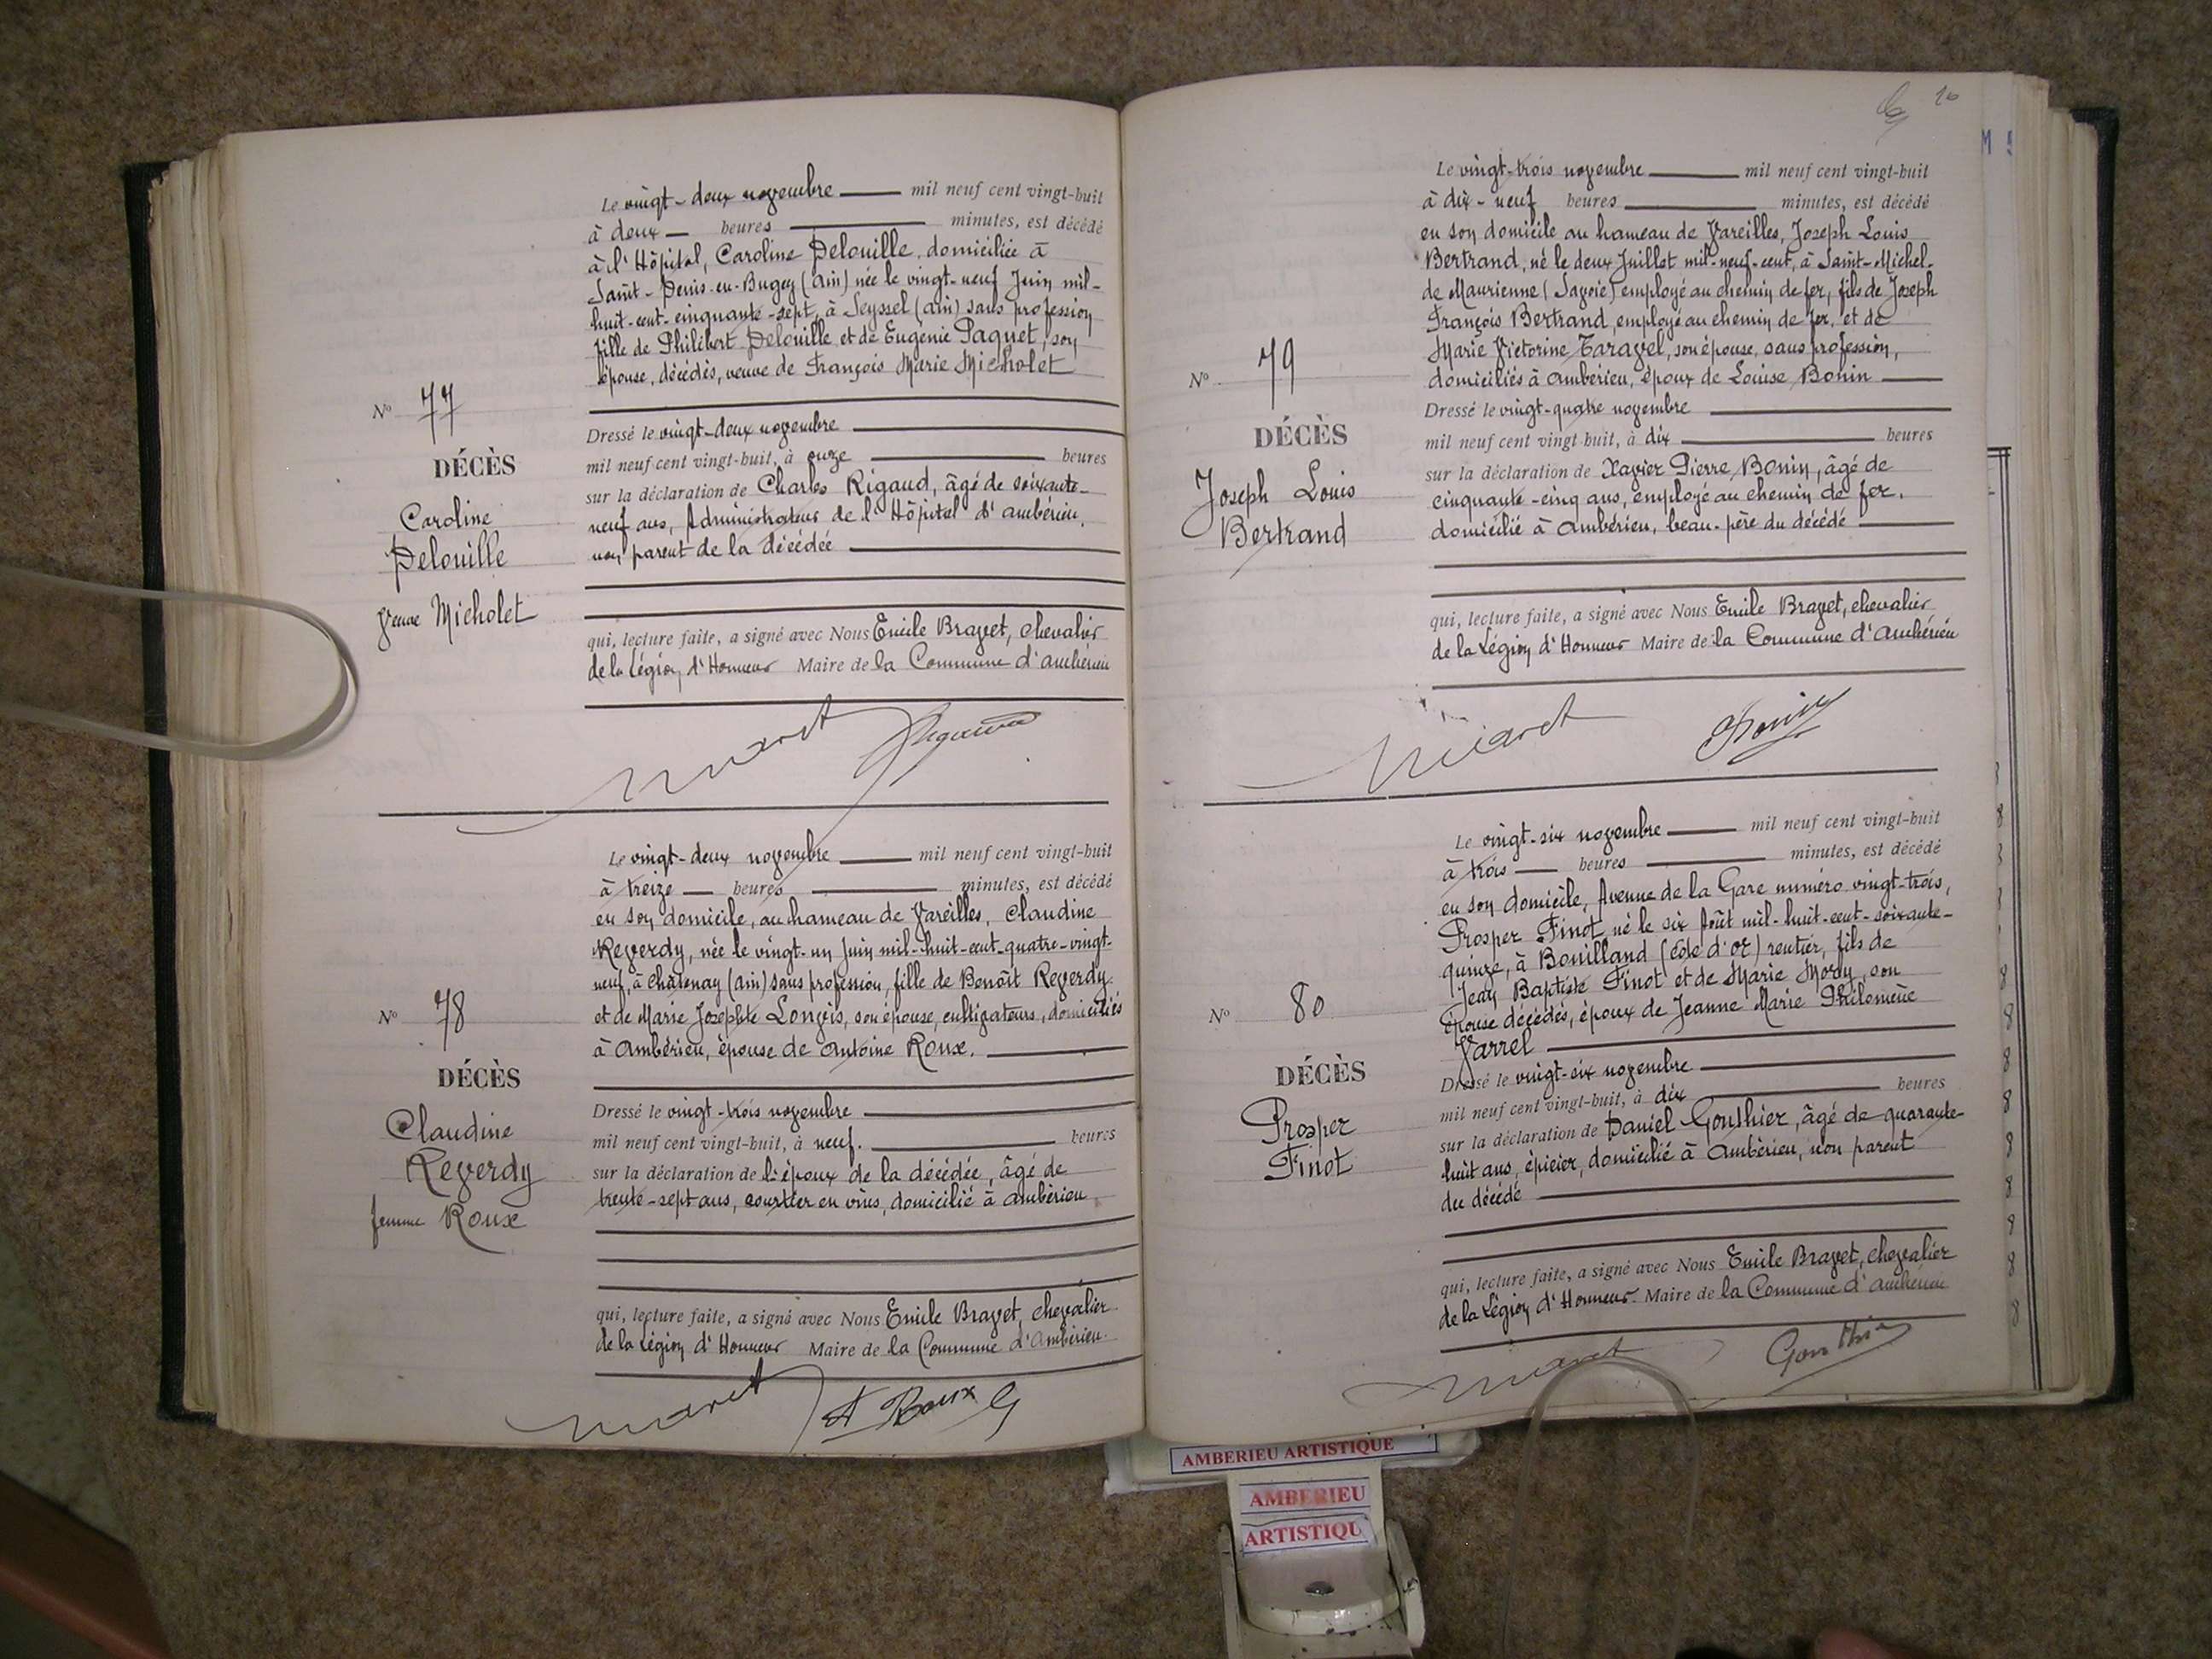 Le vingt-deux novembre mil neuf cent vingt-huit
à deux heures minutes, est décédé
à l'Hôpital, Caroline Delouille, domiciliée à
Saint-Denis-en-Bugey (Ain) née le vingt-neuf Juin mil-
huit-cent-cinquante-sept, à Seyssel (Ain) sans profession
fille de Philibert Delouille et de Eugénie Paquet, son
épouse, décédés, veuve de François Marie Micholet
N° 77
DÉCÈS
Caroline
Delouille
Veuve Micholet
Dressé le vingt-deux novembre
mil neuf cent vingt-huit, à onze heures
sur la déclaration de Charles Rigaud, âgé de soixante-
neuf ans, Administrateur de l'Hôpital d'Ambérieu,
non parent de la décédée
qui, lecture faite, a signé avec Nous Emile Bravet, chevalier
de la Légion d'Honneur Maire de la Commune d'Ambérieu
Le vingt-deux novembre mil neuf cent vingt-huit
à treize heures minutes, est décédé
en son domicile, au hameau de Vareilles, Claudine
Reverdy, née le vingt-un Juin mil-huit-cent-quatre-vingt-
neuf, à Châtenay (Ain) sans profession, fille de Benoît Reverdy
et de Marie Josephte Longis, son épouse, cultivateurs, domiciliés
à Ambérieu, épouse de Antoine Roux.
N° 78
DÉCÈS
Claudine
Reverdy
femme Roux
Dressé le vingt-trois novembre
mil neuf cent vingt-huit, à neuf. heures
sur la déclaration de l'époux de la décédée, âgé de
trente-sept ans, courtier en vins, domicilié à Ambérieu
qui, lecture faite, a signé avec Nous Emile Bravet, chevalier
de la Légion d'Honneur Maire de la Commune d'Ambérieu.
A Roux
Le vingt-trois novembre mil neuf cent vingt-huit
à dix-neuf heures minutes, est décédé
en son domicile au hameau de Vareilles, Joseph Louis
Bertrand, né le deux Juillet mil-neuf-cent, à Saint-Michel-
de Maurienne (Savoie) employé au chemin de fer, fils de Joseph
François Bertrand, employé au chemin de fer, et de
Marie Victorine Taravel, son épouse, sans profession,
domiciliés à Ambérieu, époux de Louise Bonin
N° 79
DÉCÈS
Joseph Louis
Bertrand
Dressé le vingt-quatre novembre
mil neuf cent vingt-huit, à dix heures
sur la déclaration de Xavier Pierre Bonin, âgé de
cinquante-cinq ans, employé au chemin de fer.
domicilié à Ambérieu, beau-père du décédé
qui, lecture faite, a signé avec Nous Emile Bravet, chevalier
de la Légion d'Honneur Maire de la Commune d'Ambérieu
Le vingt-six novembre mil neuf cent vingt-huit
à trois heures minutes, est décédé
en son domicile, Avenue de la Gare numéro vingt-trois,
Prosper Finot né le six Août mil-huit-cent-soixante-
quinze, à Bouilland (Côte d'Or) rentier, fils de
Jean Baptiste Finot et de Marie Mordy, son
épouse décédés, époux de Jeanne Marie Philomène
Varrel
N° 80
DÉCÈS
Prosper
Finot
Dressé le vingt-six novembre
mil neuf cent vingt-huit, à dix heures
sur la déclaration de Daniel Gonthier, âgé de quarante-
huit ans, épicier, domicilié à Ambérieu, non parent
du décédé
qui, lecture faite, a signé avec Nous Emile Bravet, chevalier
de la Légion d'Honneur Maire de la Commune d'Ambérieu
Gonthier
AMBERIEU ARTISTIQUE
AMBERIEU
ARTISTIQU